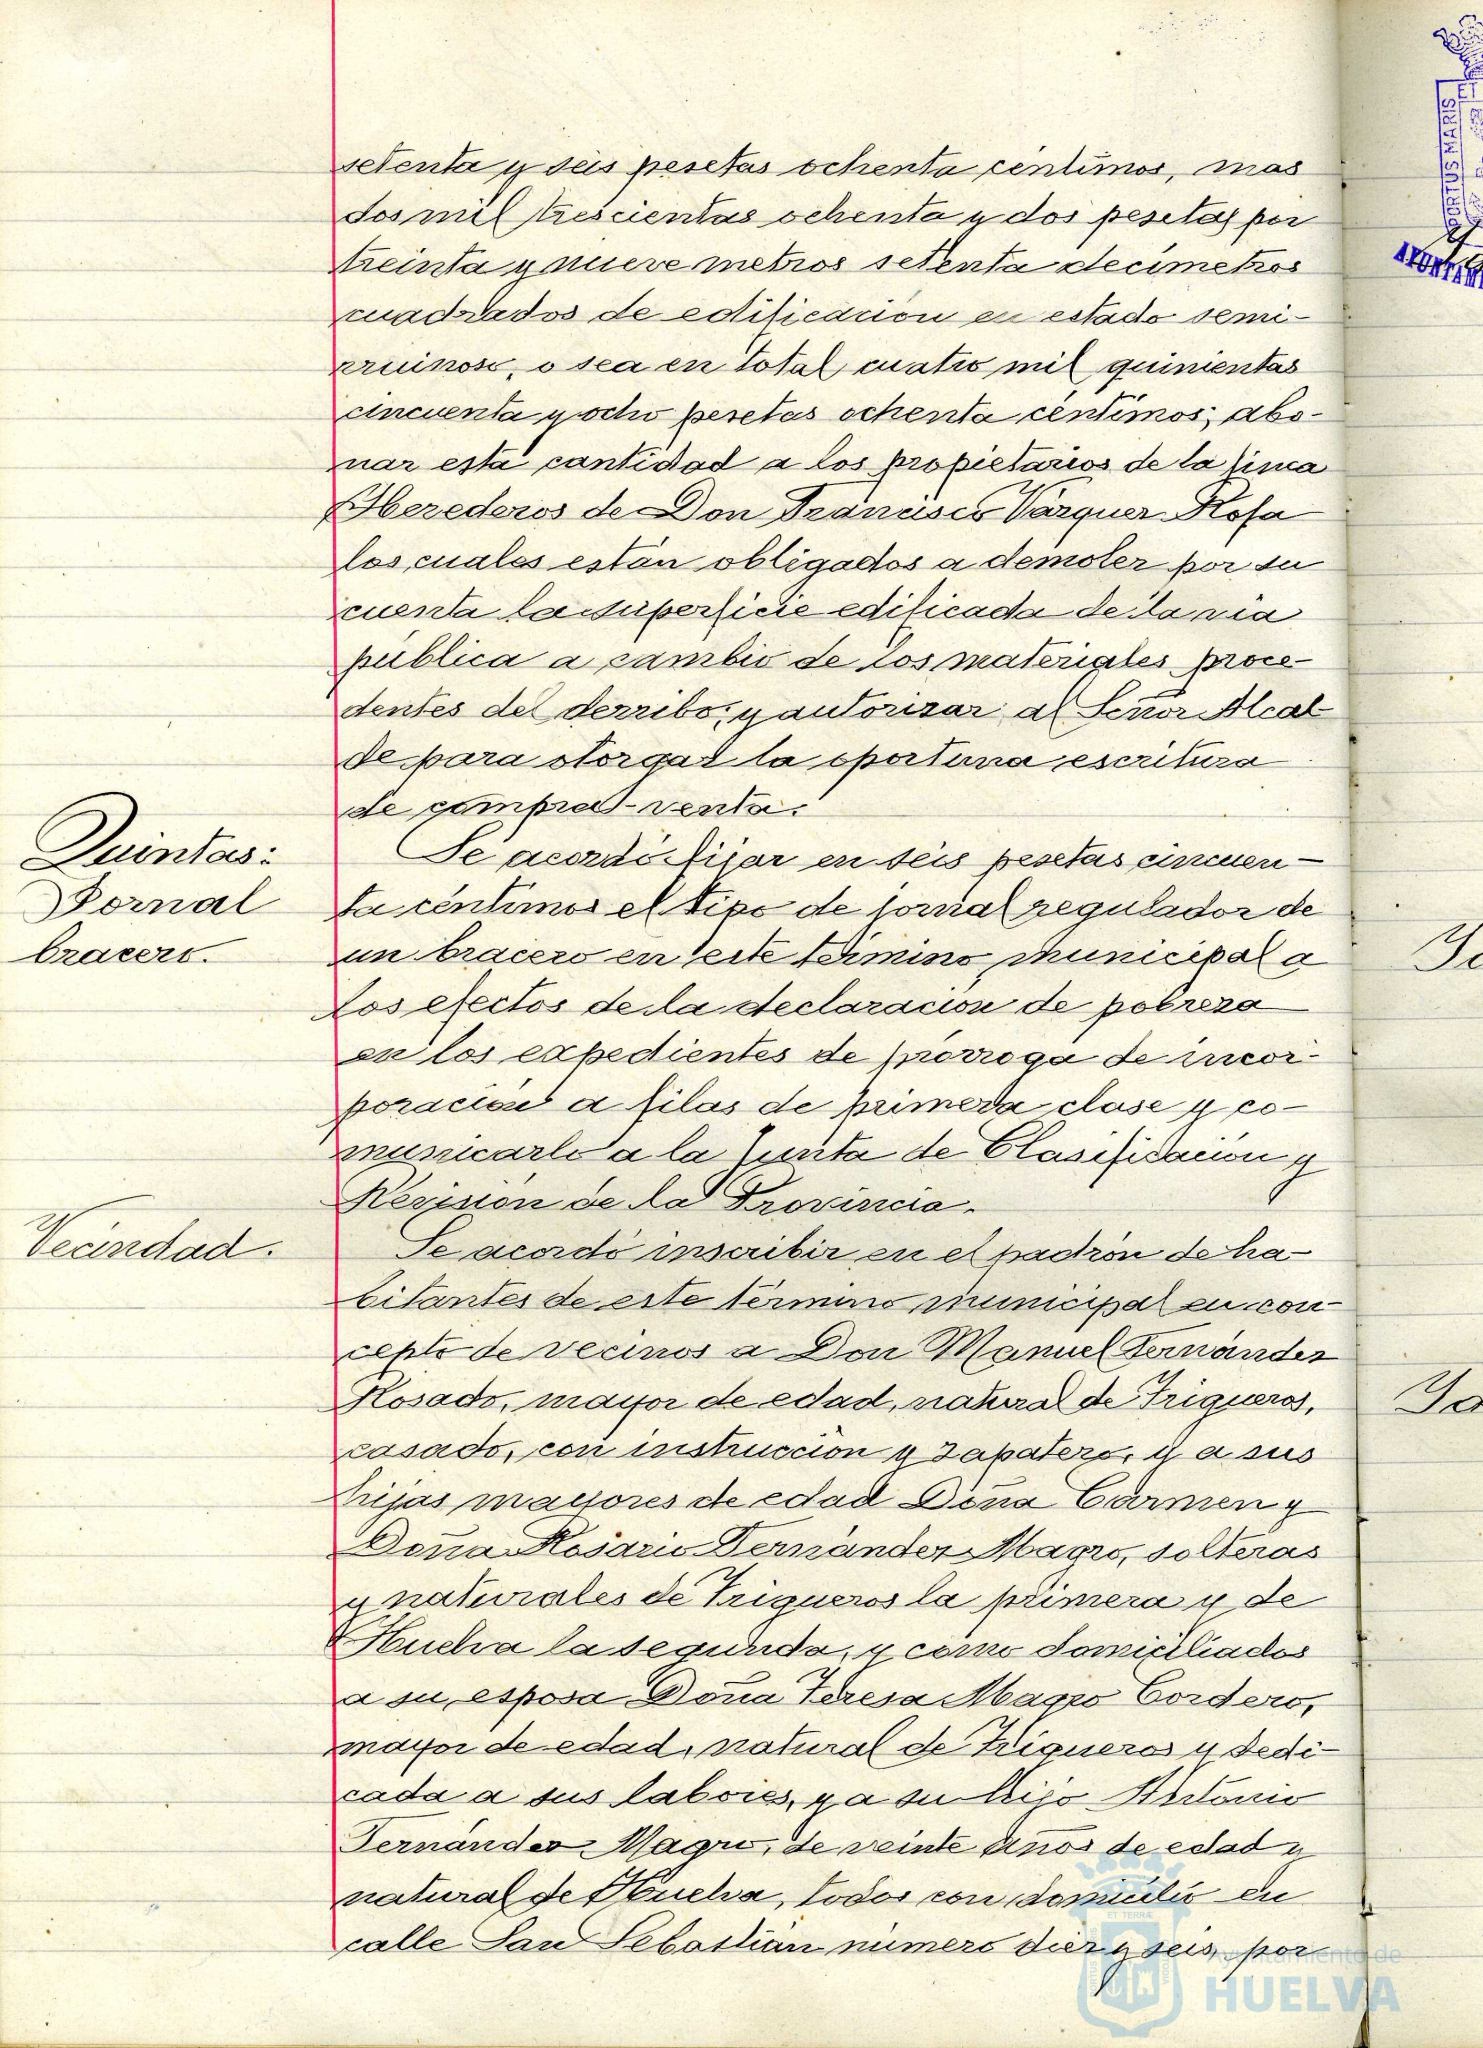 setenta y seis pesetas ochenta céntimos, mas
dos mil trescientas ochenta y dos pesetas por
treinta y nueve metros setenta decimetros
cuadrados de edificación en estado semi-
rruinoso, o sea en total cuatro mil quinientas
cincuenta y ocho pesetas ochenta céntimos; abo-
nar esta cantidad a los propietarios de la finca
Herederos de Don Francisco Vázquez Rofa
los cuales están obligados a demoler por su
cuenta la superficie edificada de la via
pública a cambio de los materiales proce-
dentes del derribo; y autorizar al Señor Alcal-
de para otorgar la oportuna escritura
de compra-venta.
Quintas:
Jornal
bracero.
Se acordó fijar en seis pesetas cincuen-
ta céntimos el tipo de jornal regulador de
un bracero en este término municipal a
los efectos de la declaración de pobreza
en los expedientes de prórroga de incor-
poración a filas de primera clase y co-
municarlo a la Junta de Clasificación y
Revisión de la Provincia.
Vecindad.
Se acordó inscribir en el padrón de ha-
bitantes de este término municipal en con-
cepto de vecinos a Don Manuel Fernández
Rosado, mayor de edad, natural de Trigueros,
casado, con instrucción y zapatero, y a sus
hijas mayores de edad Doña Carmen y
Doña Rosario Fernández Magro, solteras
y naturales de Trigueros la primera y de
Huelva la segunda, y como domiciliados
a su esposa Doña Teresa Magro Cordero,
mayor de edad, natural de Trigueros y dedi-
cada a sus labores, y a su hijo Antonio
Fernández Magro, de veinte años de edad y
natural de Huelva, todos con domicilio en
calle San Sebastián número diez y seis, por
PORTUS MARIS ET
AYUNTAM
ET TERRÆ
Ayuntamiento de
HUELVA